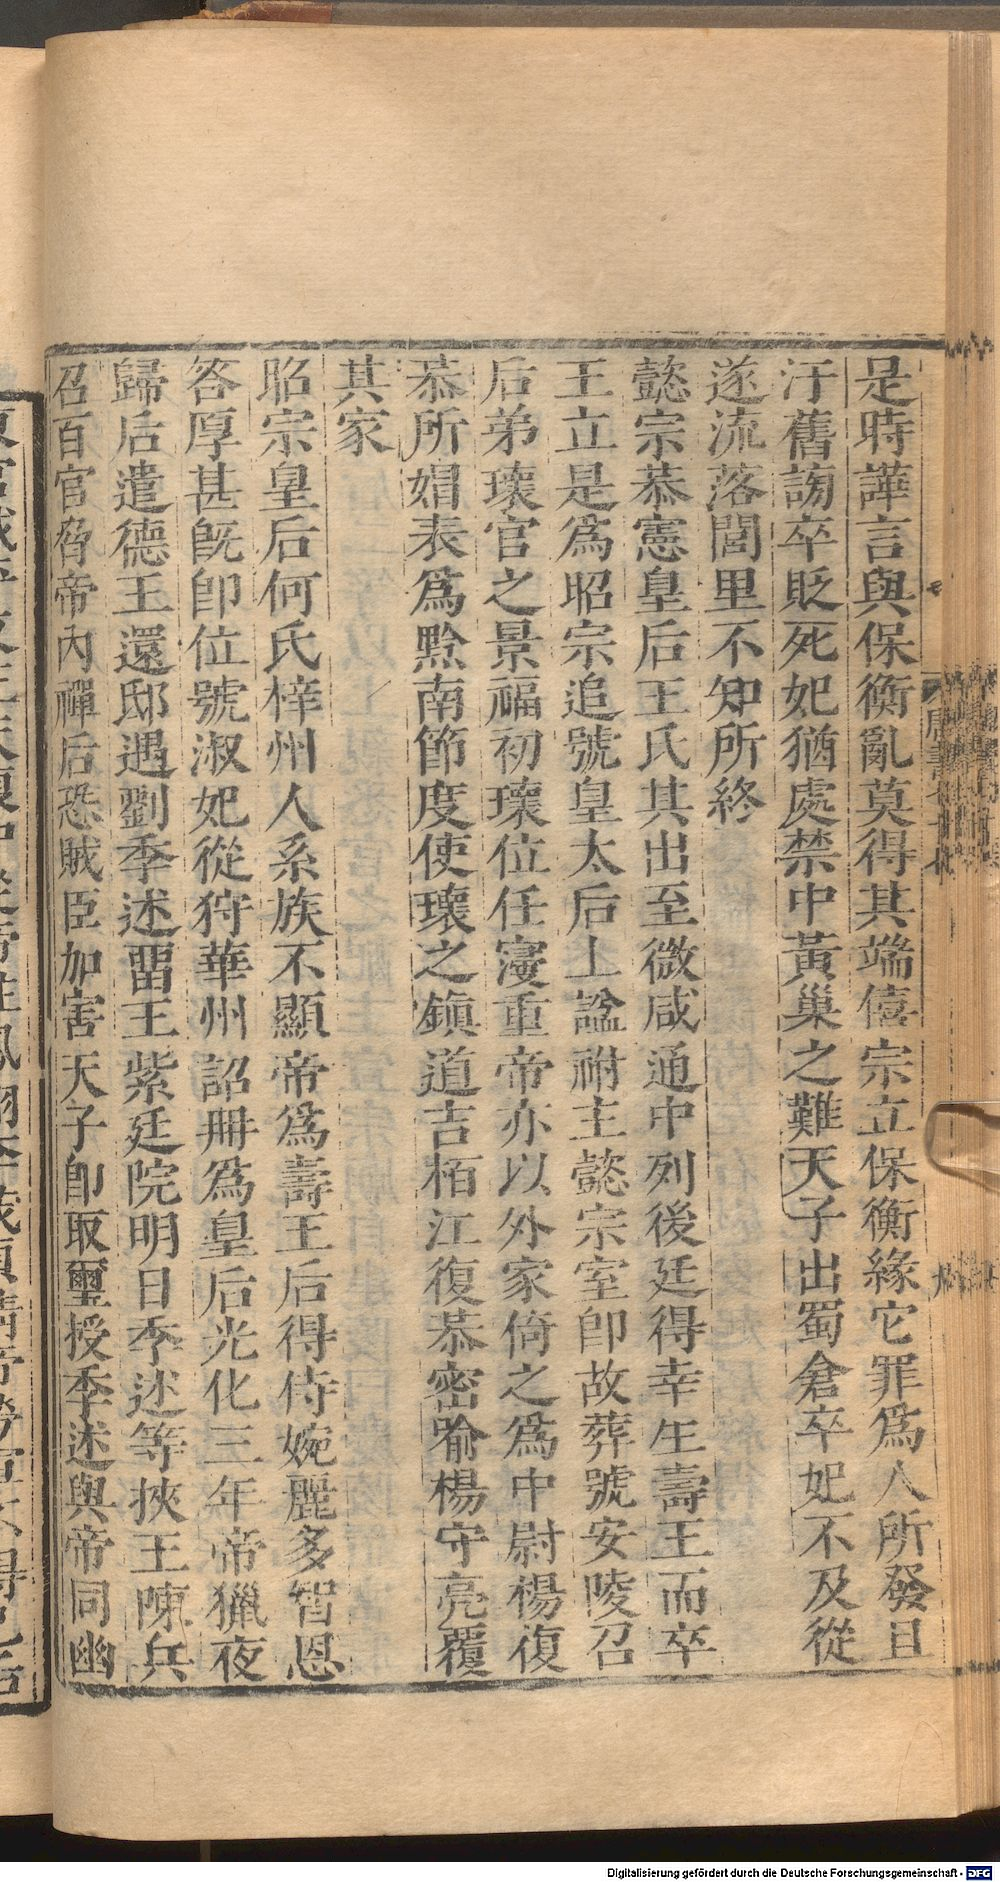 是時譁言與保衡亂莫得其端僖宗立保衡緣它罪爲人所發且
汙舊謗卒貶死妃猶處禁中黃巢之難天子出蜀倉卒妃不及從
遂流落閭里不知所終
懿宗恭憲皇后王氏其出至微咸通中列後廷得幸生壽王而卒
王立是爲昭宗追號皇太后上諡祔主懿宗室卽故葬號安陵召
后弟瓌官之景福初瓌位任寖重帝亦以外家倚之爲中尉楊復
恭所媢表爲黔南節度使瓌之鎮道吉栢江復恭密喻楊守亮覆
其家
昭宗皇后何氏梓州人系族不顯帝爲壽王后得侍婉麗多智恩
答厚甚旣卽位號淑妃從狩華州詔冊爲皇后光化三年帝獵夜
歸后遣德王還邸遇劉季述畱王紫廷院明日季述等挾王陳兵
召百官脅帝內禪后恐賊臣加害天子卽取璽授季述與帝同幽
Digitalisierung gefördert durch die Deutsche Forschungsgemeinschaft - DFG